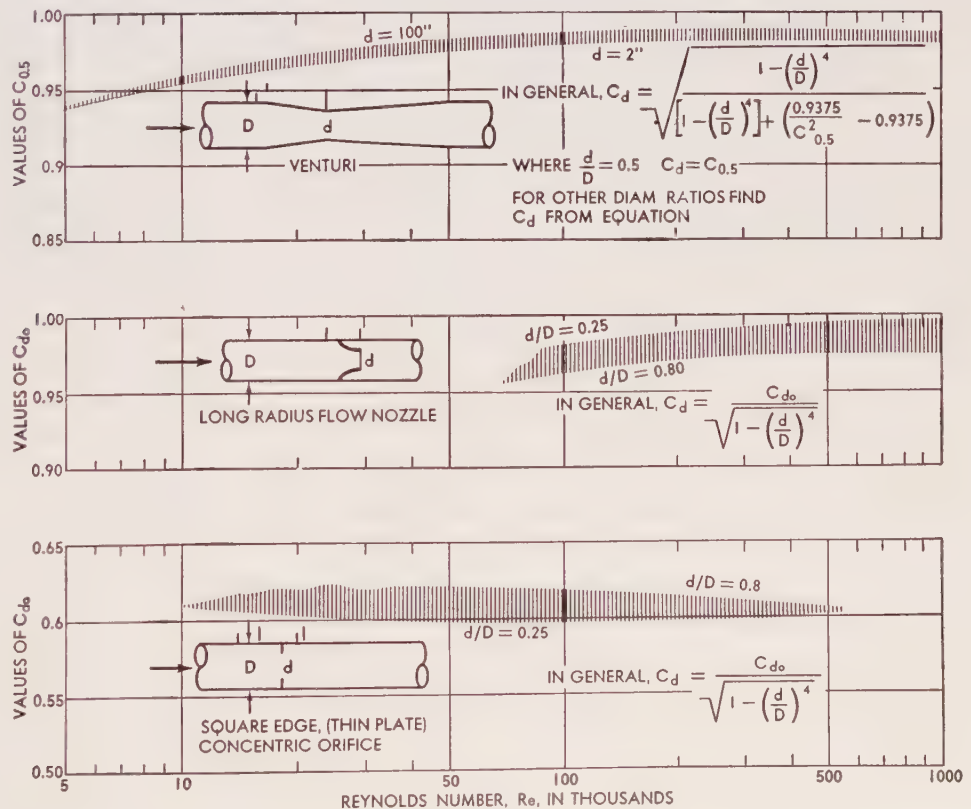 VALUES OF C0.5
1.00
0.95
0.9
0.85
d = 100"
d = 2"
D
d
VENTURI
IN GENERAL, Cd = √( (1 − (d/D)^4) / ([1 − (d/D)^4] + (0.9375/C²0.5 − 0.9375)) )
WHERE d/D = 0.5 Cd = C0.5
FOR OTHER DIAM RATIOS FIND
Cd FROM EQUATION
VALUES OF Cdo
1.00
0.95
0.90
D
d
LONG RADIUS FLOW NOZZLE
d/D = 0.25
d/D = 0.80
IN GENERAL, Cd = Cdo / √(1 − (d/D)^4)
VALUES OF Cdo
0.65
0.6
0.55
0.50
d/D = 0.8
d/D = 0.25
D
d
SQUARE EDGE, (THIN PLATE)
CONCENTRIC ORIFICE
IN GENERAL, Cd = Cdo / √(1 − (d/D)^4)
5 10 50 100 500 1000
REYNOLDS NUMBER, Re, IN THOUSANDS